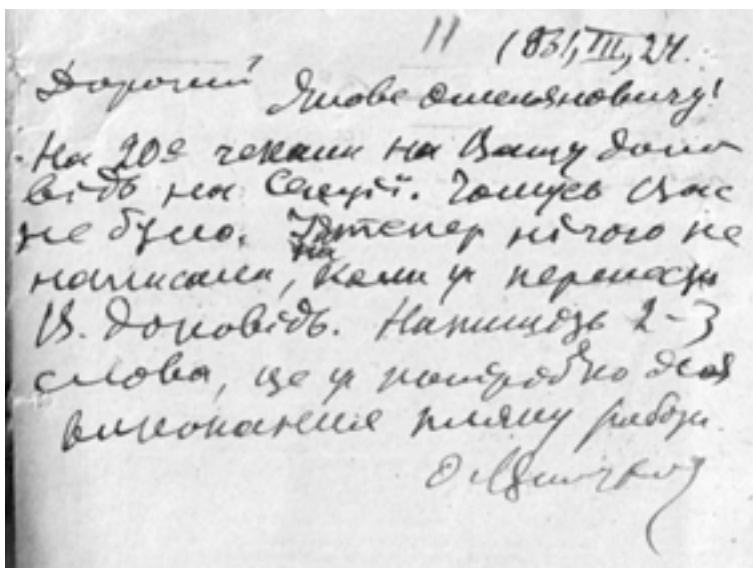 11 1931, III, 24.
Дорогий
Якове Омеляновичу!
На 20е чекали на Вашу допо
відь на Секції. Чомусь Вас
не було. І тепер нічого не
написали, на коли перенос
В. доповідь. Напишіть 2-3
слова, це потрібно для
виконання пляну работи.